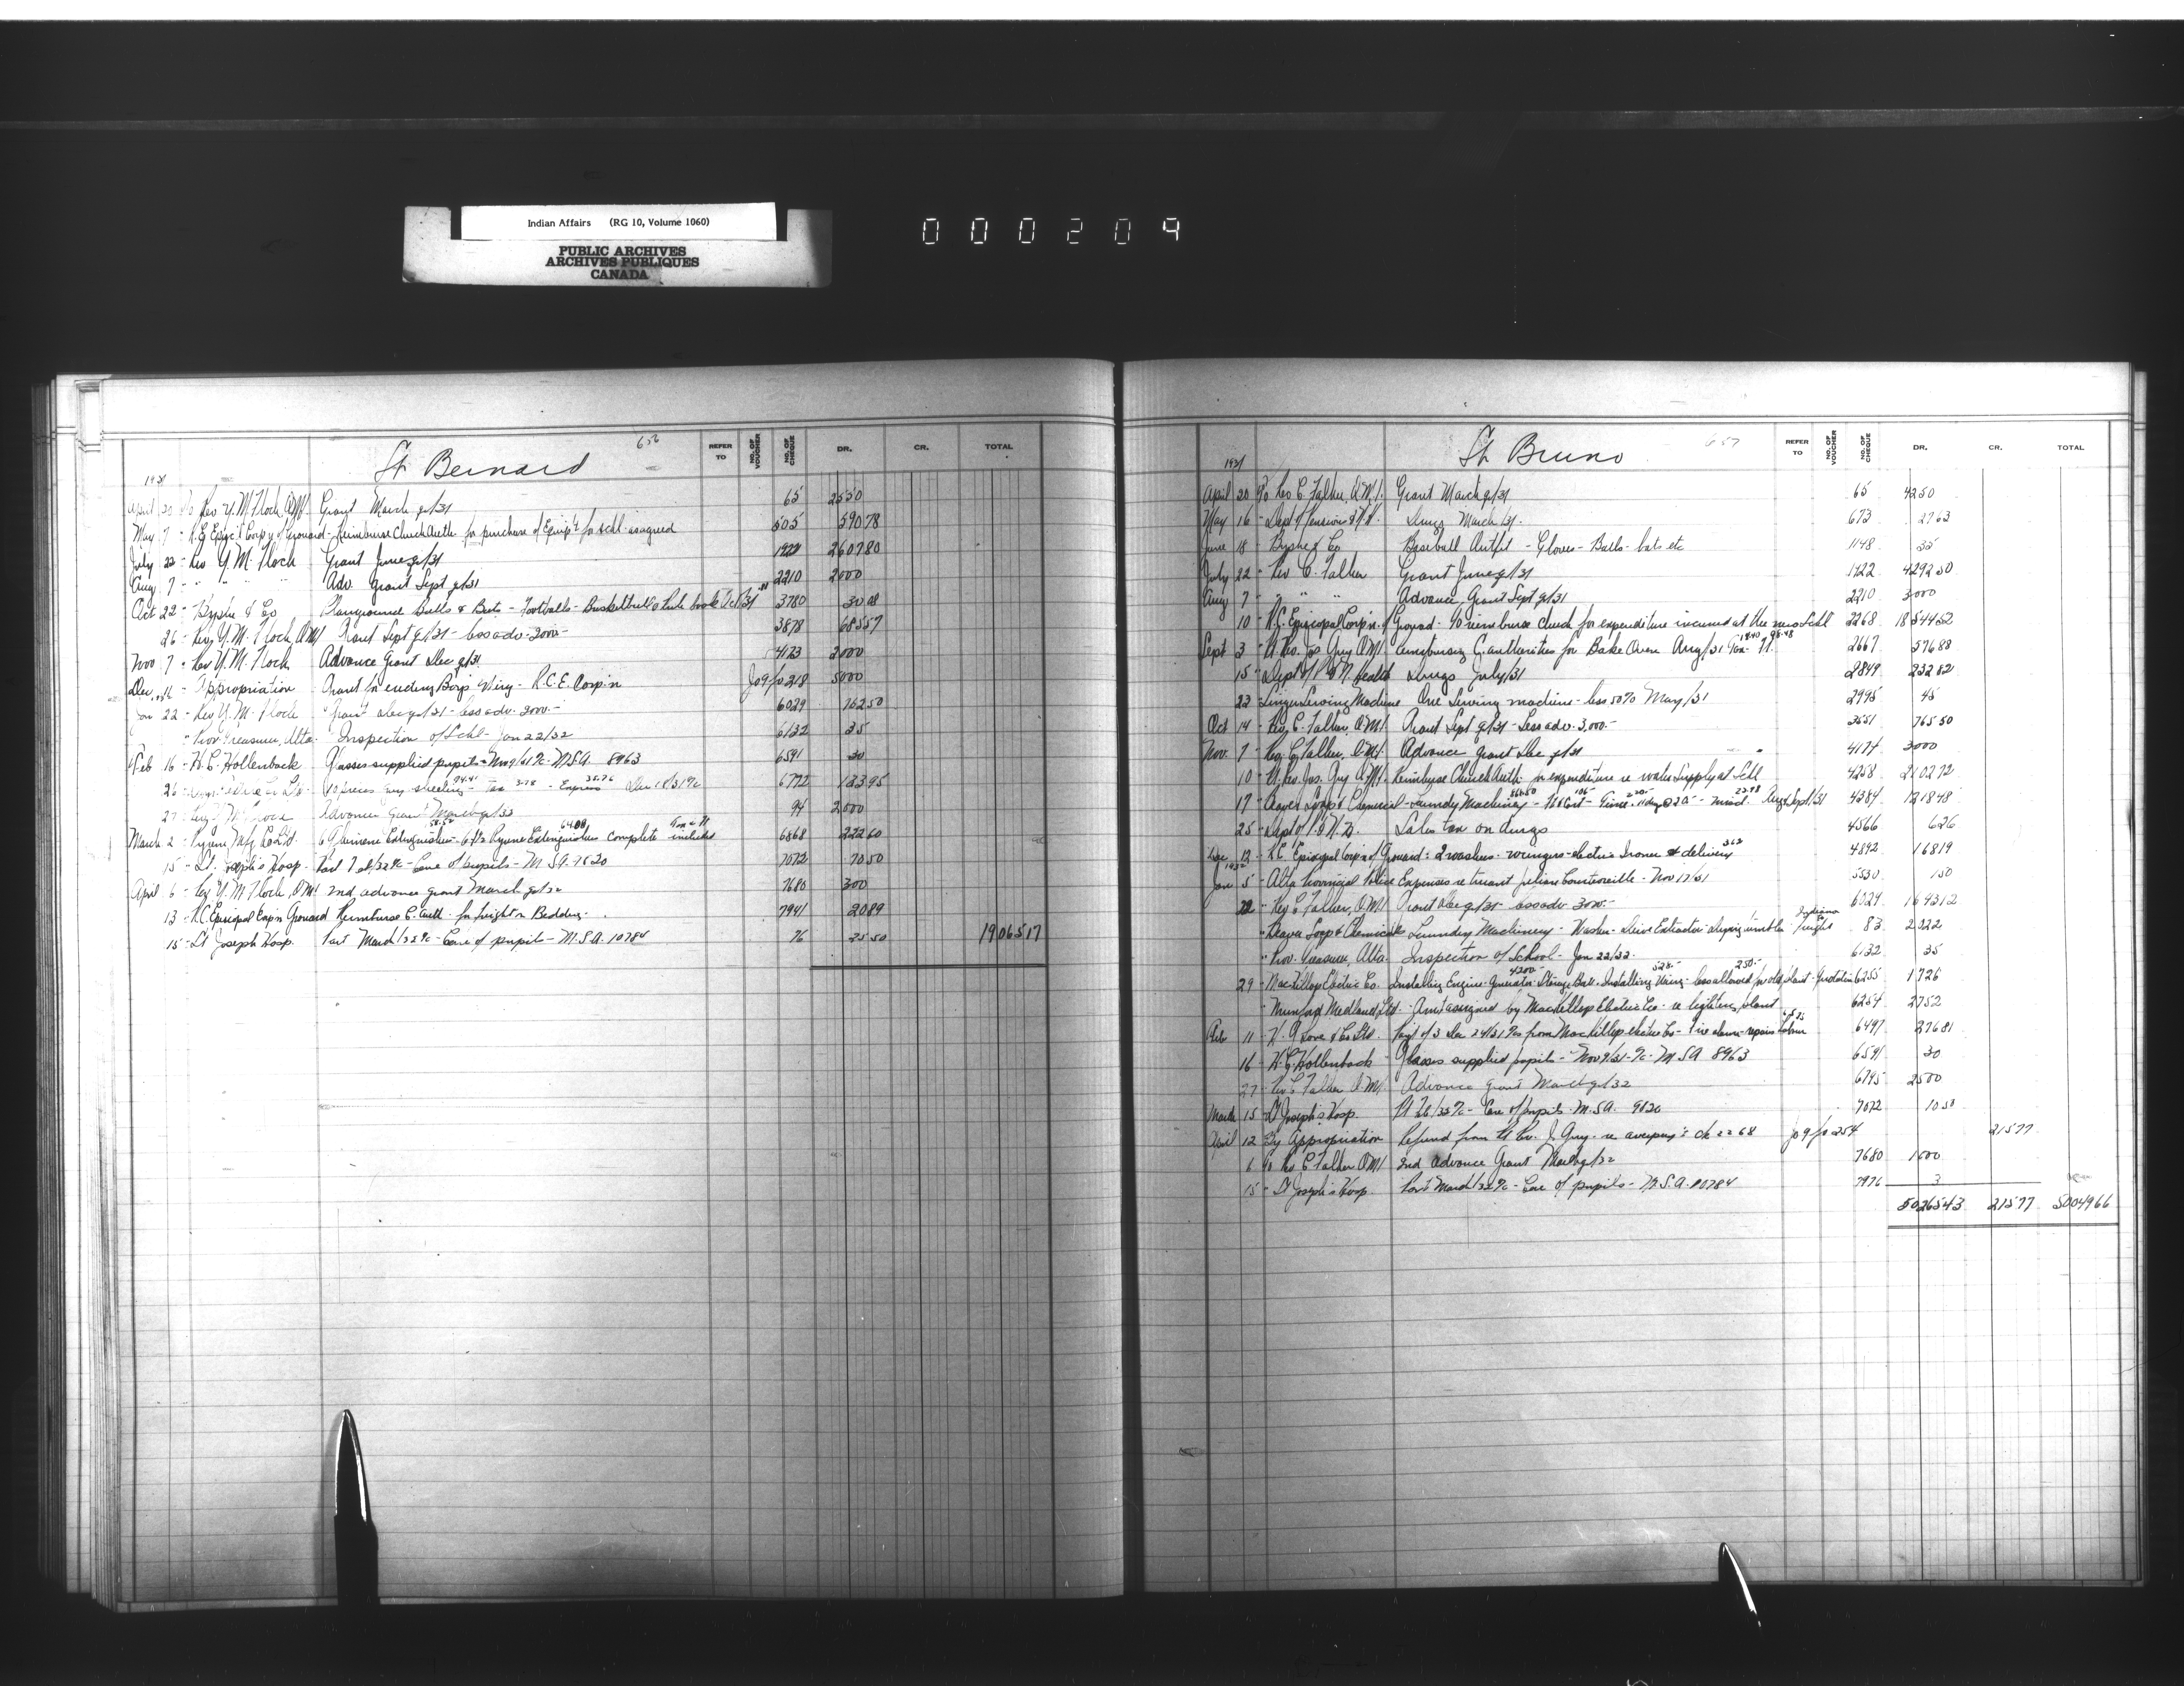 Indian Affairs (RG 10, Volume 1060)
PUBLIC ARCHIVES
ARCHIVES PUBLIQUES
CANADA
000209
656
St Bernard
REFER TO NO. OF VOUCHER NO. OF CHEQUE DR. CR. TOTAL
1931
April 20 To Rev Y. M. Floch, OMI Grant March q/31 65 2550
May 7 - R.C. Episc'l Corp'n of Grouard - Reimburse Church Auth. for purchase of Equip't for schl. as agreed 505 590 78
July 22 - Rev Y. M. Floch Grant June q/31 1422 2607 80
Aug 7 - " " " Adv. Grant Sept q/31 2210 2000
Oct 22 - Byshe & Co Playground Balls & Bats - Footballs - Basketballs & rule book Oct/31 3780 30 08
26 - Rev Y. M. Floch OMI Grant Sept q/31 - less adv. 2000 - 3878 685 57
Nov 7 - Rev Y. M. Floch Advance Grant Dec q/31 4173 2000
Dec 16 - Appropriation Grant for erecting Boys Wing - R.C.E. Corp'n Jo 9 fo 218 5000
Jan 22 - Rev Y. M. Floch Grant Dec q/31 - less adv. 2000 - 6029 762 50
" Prov Treasurer, Alta. Inspection of Schl - Jan 22/32 6132 35
Feb 16 - H. C. Hollenback Glasses supplied pupils - Nov 9/31 %c - M.S.A. 8963 6591 30
26 10 pieces grey sheeting 94.41 - Tax 3.78 - Express 35.76 Dec 18/31 %c 6772 133 95
27 Advance Grant March q/32 94 2000
March 2 - Pyrene Mfg Co Ltd. 58.52 64.08 Extinguishers complete Tax included 6868 222 60
15 - St. Joseph's Hosp. Part Feb/32 %c - Care of pupils - M.S.A. 9820 7072 70 50
April 6 - Rev Y. M. Floch OMI 2nd advance grant March q/32 7680 300
13 - R.C. Episcopal Corp'n Grouard Reimburse C. Auth. for freight on Bedding. 7941 20 89
15 - St Joseph Hosp. Part March/32 %c - Care of pupils - M.S.A. 10784 76 25 50 19065 17
657
St Bruno
REFER TO NO. OF VOUCHER NO. OF CHEQUE DR. CR. TOTAL
1931
April 20 To Rev C. Falher, O.M.I. Grant March q/31 65 4250
May 16 - Dept of Pensions & N.H. Drugs March/31. 673 27 63
June 18 - Byshe & Co Baseball Outfit - Gloves - Balls - bats etc 1148 35
July 22 - Rev C. Falher Grant June q/31 1422 4292 50
Aug 7 " " " Advance Grant Sept q/31 2210 3000
10 - R.C. Episcopal Corp'n. of Grouard - To reimburse church for expenditure incurred at the new Schl 2268 18544 52
Sept 3 - Rt. Rev. Jos Guy OMI reimbursing C. authorities for Bake Oven Aug/31 Tax 19.40 2667 576 88
15 - Dept of P & N Health Drugs July/31 2849 232 82
23 - Singer Sewing Machine One Sewing machine - less 50% May/31 2995 45
Oct 14 - Rev C. Falher, O.M.I. Grant Sept q/31 - Less adv. 3,000 - 3551 765 50
Nov. 7 - Rev C. Falher, O.M.I. Advance Grant Dec q/31 4174 3000
10 - Rt. Rev. Jos. Guy O.M.I. Reimburse Church Auth. for expenditure re water supply at Schl 4258 2102 72
17 - Beaver Soap & Chemical - Laundry Machinery 4384 1218 48
25 - Dept of P. & N. H. Sales tax on drugs 4566 6 26
Dec 12 - R.C. Episcopal Corp'n of Grouard: 2 washers - wringers - electric Ironer & delivery 4892 168 19
1932
Jan 5 - Alta Provincial Police Expenses re truant Julian Courtoreille - Nov 17/31 5530 1 50
22 - Rev C Falher, OMI Grant Dec q/31 - less adv 3000 - 6029 1643 12
" Beaver Soap & Chemicals Laundry Machinery - Washer - Drive Extractor - drying tumbler freight 83 2322
" Prov. Treasurer, Alta. Inspection of School - Jan 22/32. 6132 35
29 - MacKillop Electric Co. Installing Engine - Generator - Storage Batt. - Installing Wiring - less allowed for old plant 6255 1726
" Mumford Medland, Ltd. - Amt assigned by MacKillop Electric Co. re lighting plant 6254 2752
Feb 11 - H. G Love & Co Ltd. from MacKillop Electric Co - Fire alarm - repairs 6497 276 81
16 - H. C. Hollenback - Glasses supplied pupils - Nov 9/31 - %c - M.S.A 8963 6591 30
27 - Rev C Falher O.M.I. Advance Grant March q/32 6795 2500
March 15 - St Joseph's Hosp. Pt Feb/32 %c - Care of pupils - M.S.A. 9820 7072 10 50
April 12 By Appropriation Refund from Rt Rev. J. Guy - re overpay't ck 2268 Jo 9 fo 254 215 77
6 To Rev C Falher OMI 2nd advance Grant March q/32 7680 1000
15 - St Joseph's Hosp. Part March/32 %c - Care of pupils - M.S.A. 10784 7976 3
50265 43 215 77 50049 66